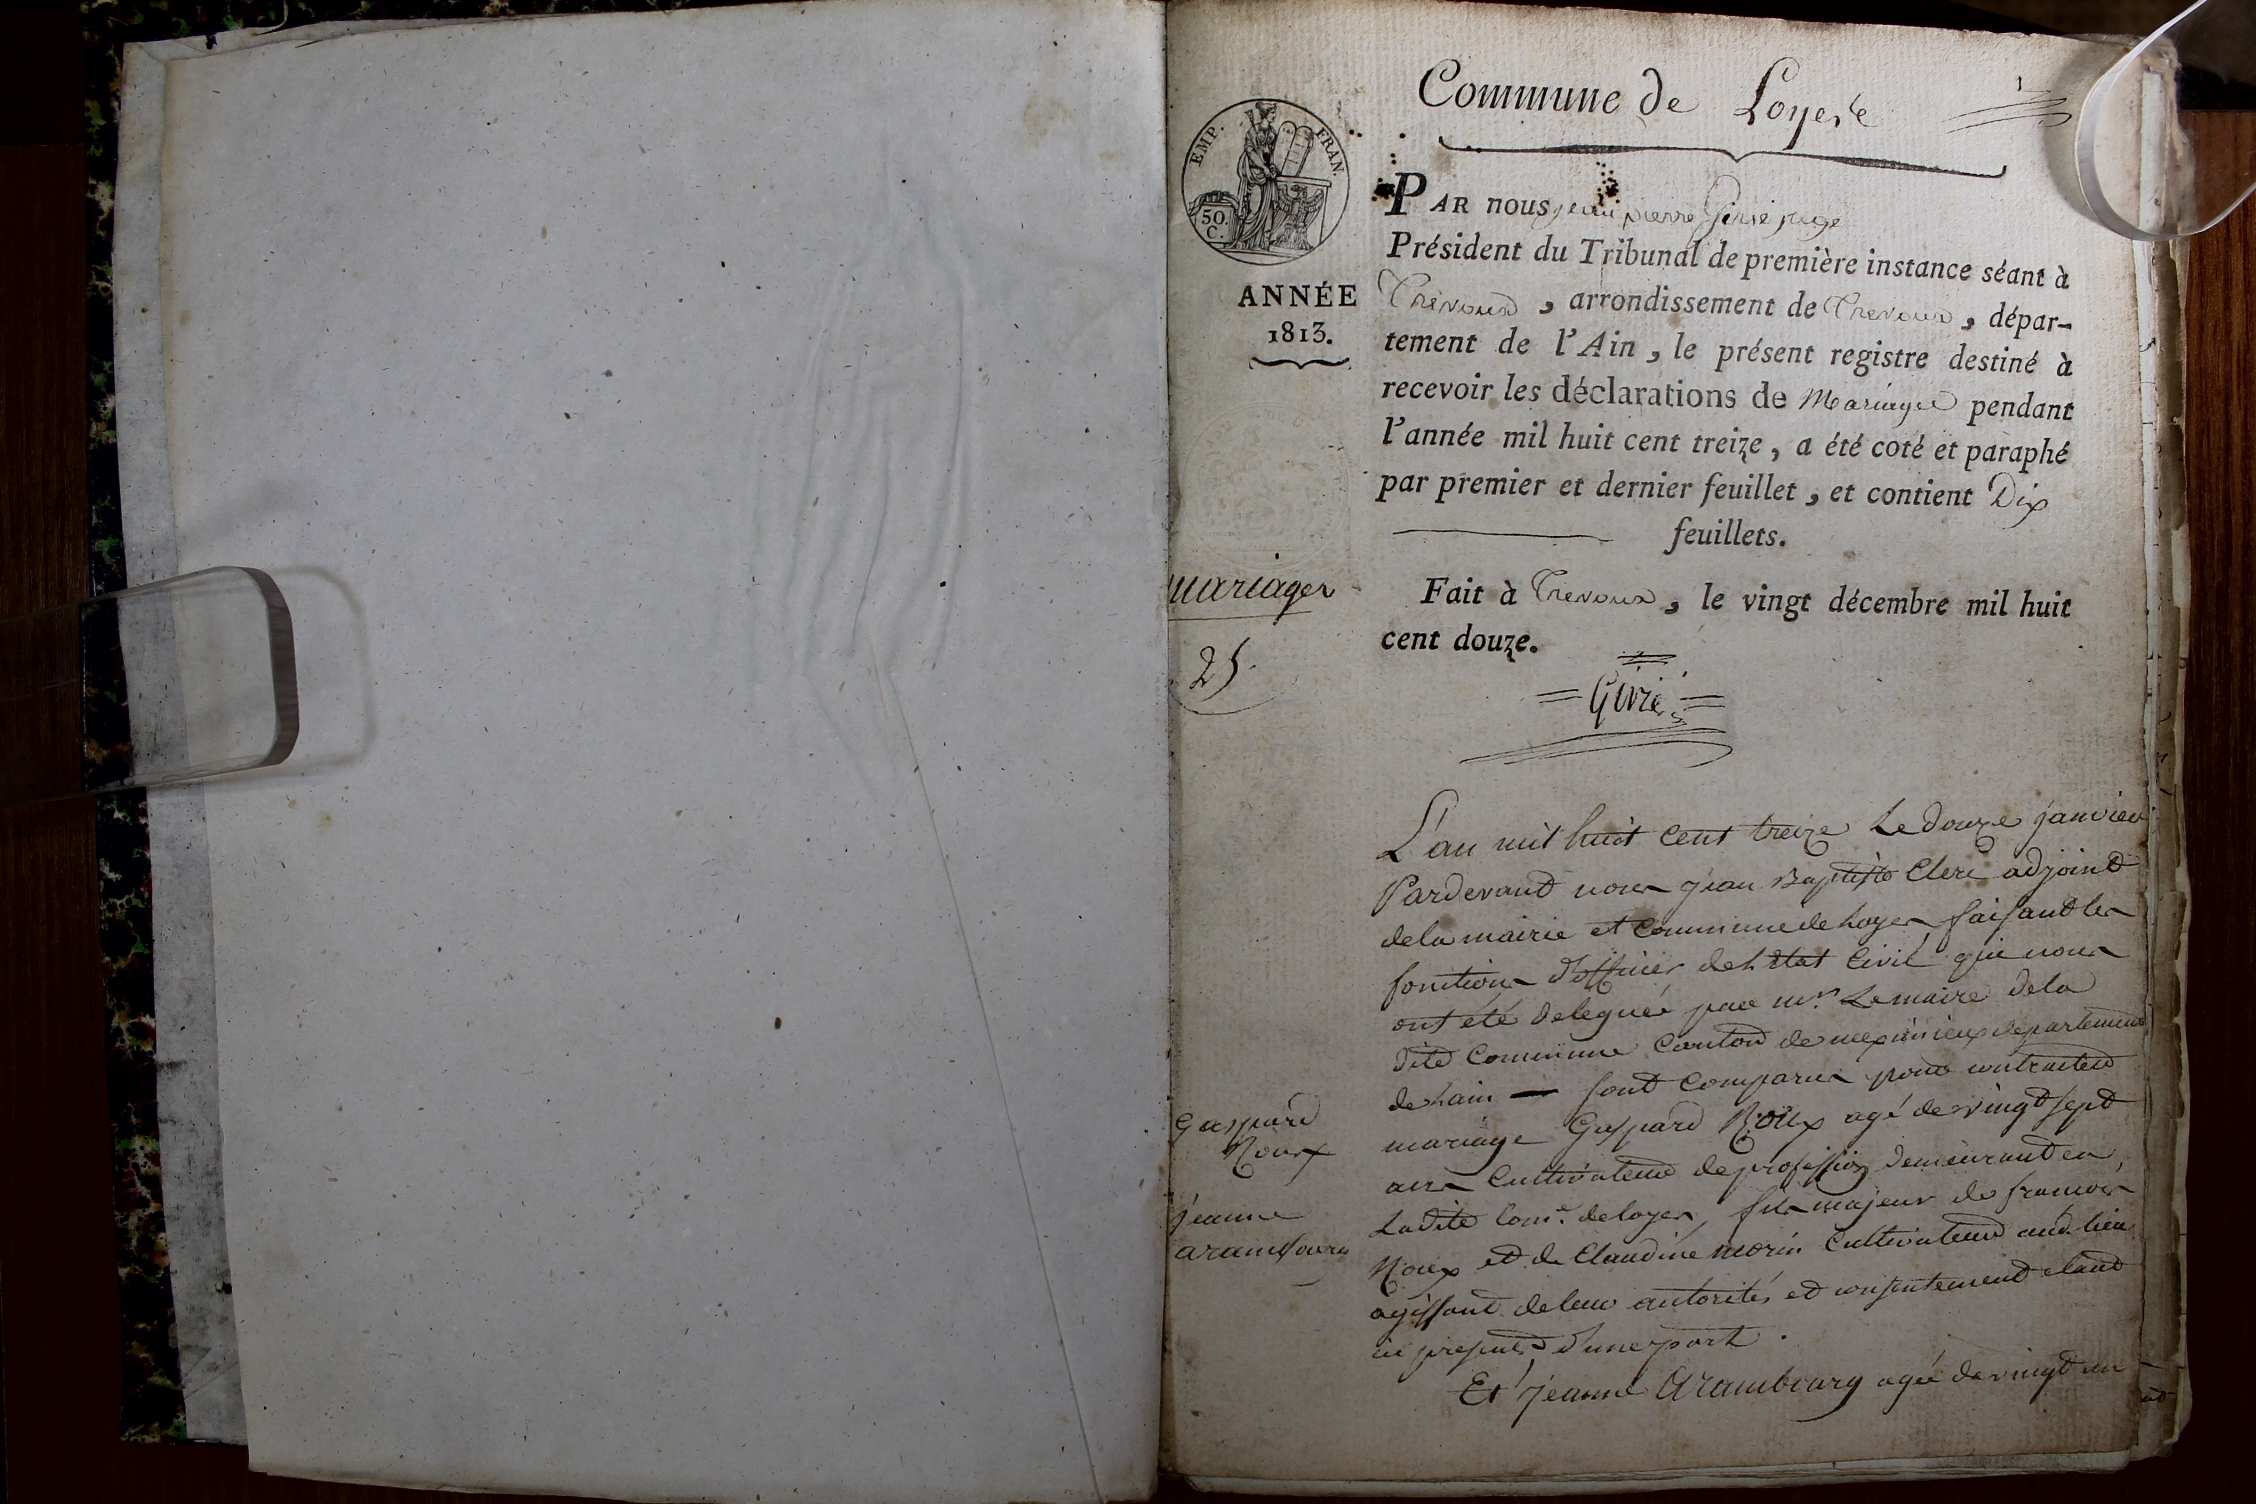 Commune de Loyes
EMP. FRAN.
50.
C.
ANNÉE
1813.
PAR nous jean pierre Girié juge
Président du Tribunal de première instance séant à
Trevoux, arrondissement de Trevoux, dépar-
tement de l'Ain, le présent registre destiné à
recevoir les déclarations de Mariages pendant
l'année mil huit cent treize, a été coté et paraphé
par premier et dernier feuillet, et contient Dix
feuillets.
Fait à Trevoux, le vingt décembre mil huit
cent douze.
Girié
mariages
25.
L'an mil huit cent treize Le douze janvier
Pardevant nous jean Baptiste Clerc adjoint
de la mairie et Commune de Loyes faisant les
fonctions d'officier de l'état Civil qui nous
ont été delegués par mr. Le maire de la
dite Commune Canton de meximieux departement
de Lain — sont Comparus pour contracter
mariage Gaspard Roux agé de vingt sept
ans Cultivateur de profession demeurant en
Ladite Come. de loyes, fils majeur de francois
Roux et de Claudine morin Cultivateurs aud. lieu
agissant de leur autorités et consentement étant
ici presents d'une part.
Et jeanne Arambourg agée de vingt un
Gaspard
Roux
jeanne
arambourg